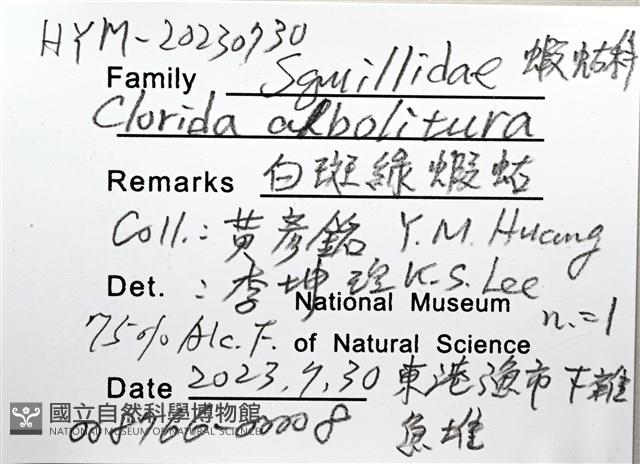 HYM-20230730
Family Squillidae 蝦蛄科
Clorida albolitura
Remarks 白斑綠蝦蛄
Coll.: 黃彥銘 Y.M. Huang
Det. : 李坤瑄 K.S. Lee
National Museum
75% Alc. F. of Natural Science n.=1
Date 2023.7.30 東港漁市下雜
魚堆
國立自然科學博物館
NATIONAL MUSEUM OF NATURAL SCIENCE